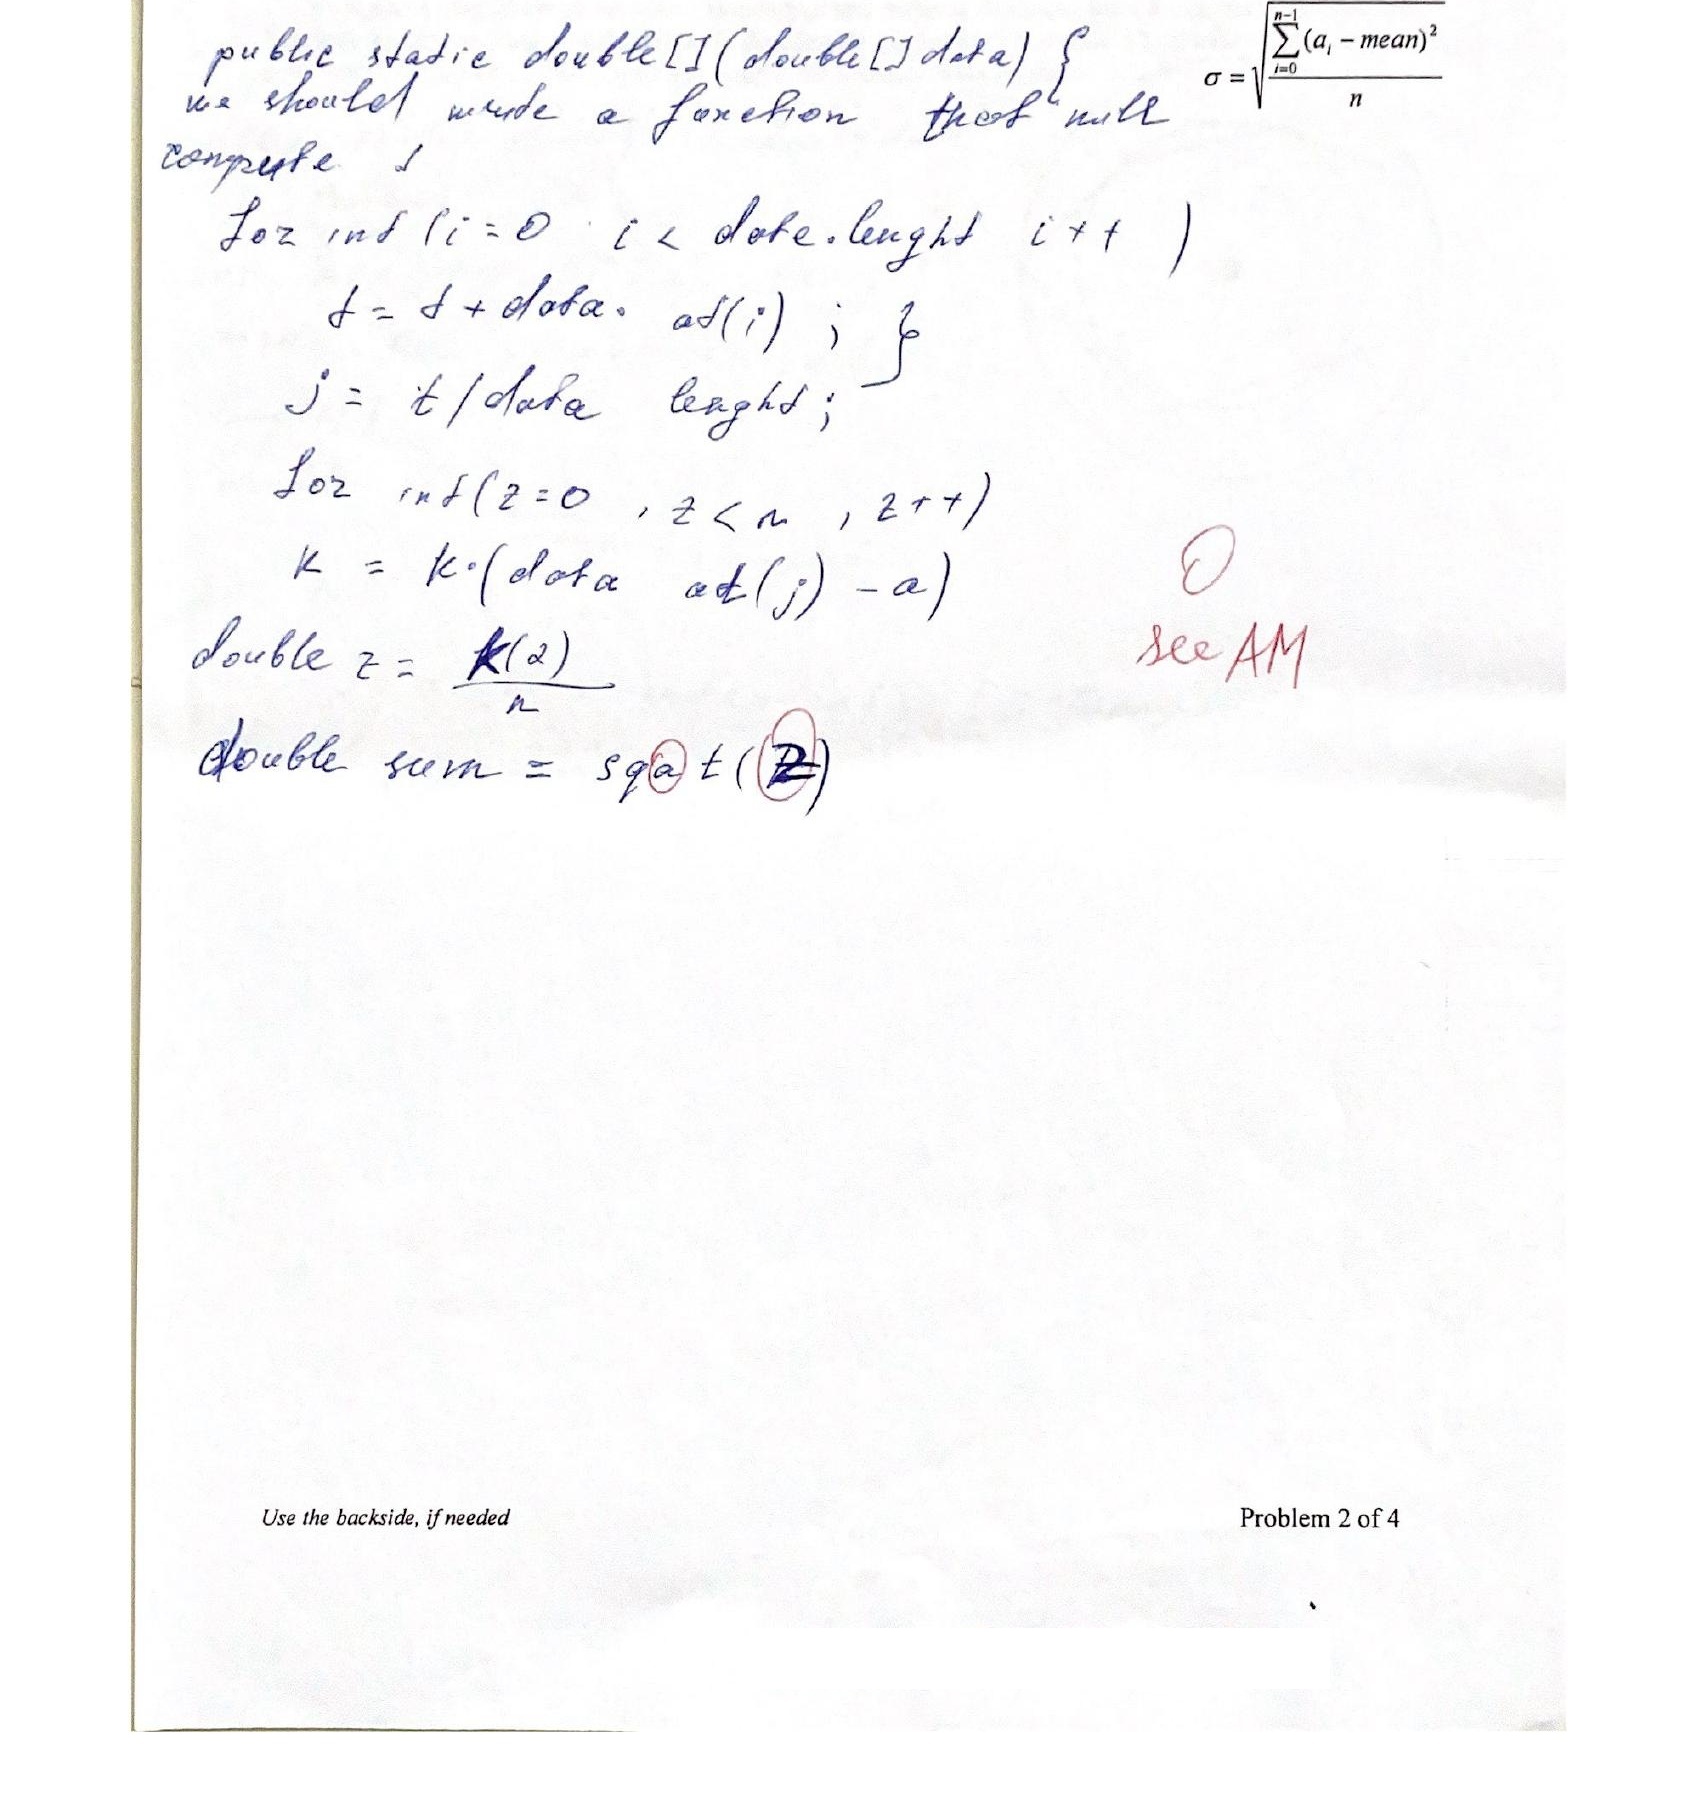 public static double[](double[] data) {
σ = √ n-1 ∑ i=0 (aᵢ – mean)² / n
we should write a function that will
compute
for int (i = 0 i < date.lenght i++ )
t = t + data. at(i) ; }
j = t / data lenght ;
for int (z = 0 , z < n , z++)
k = k·(data at(j) – a)
O
see AM
double z = k(2) / n
double sum = sqat(z)
Use the backside, if needed
Problem 2 of 4